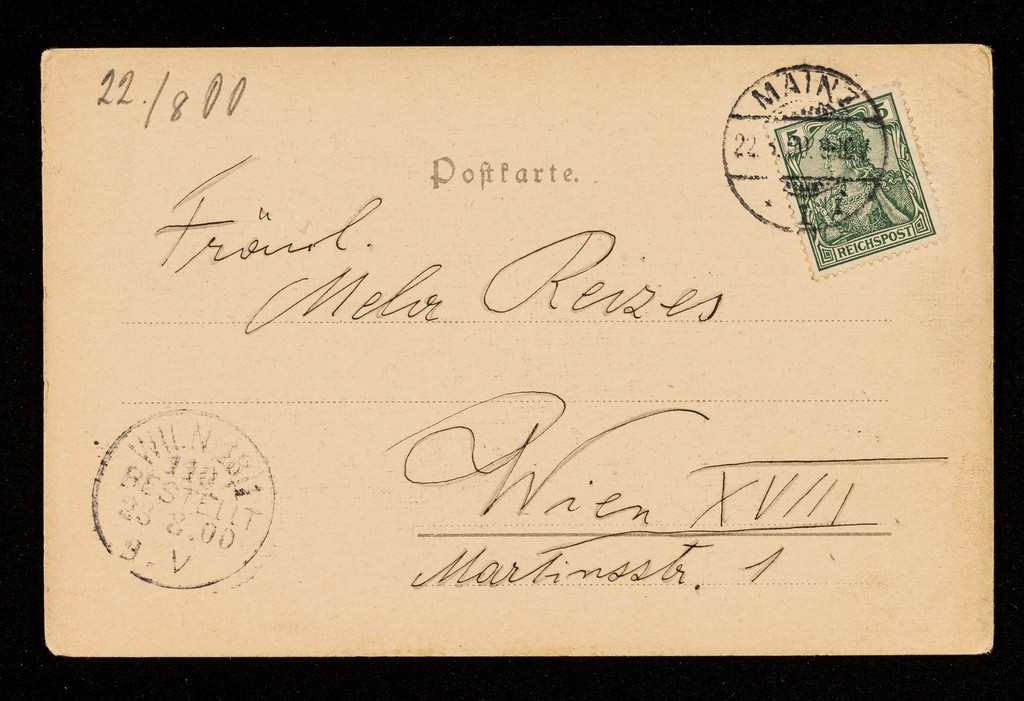 22./8 00
Postkarte.
MAINZ
22.
5 5
REICHSPOST
Fräul.
Reizes
Wien XVIII
Martinsstr. 1
WIEN 18/1
110
BESTELLT
23 8.00
9.V